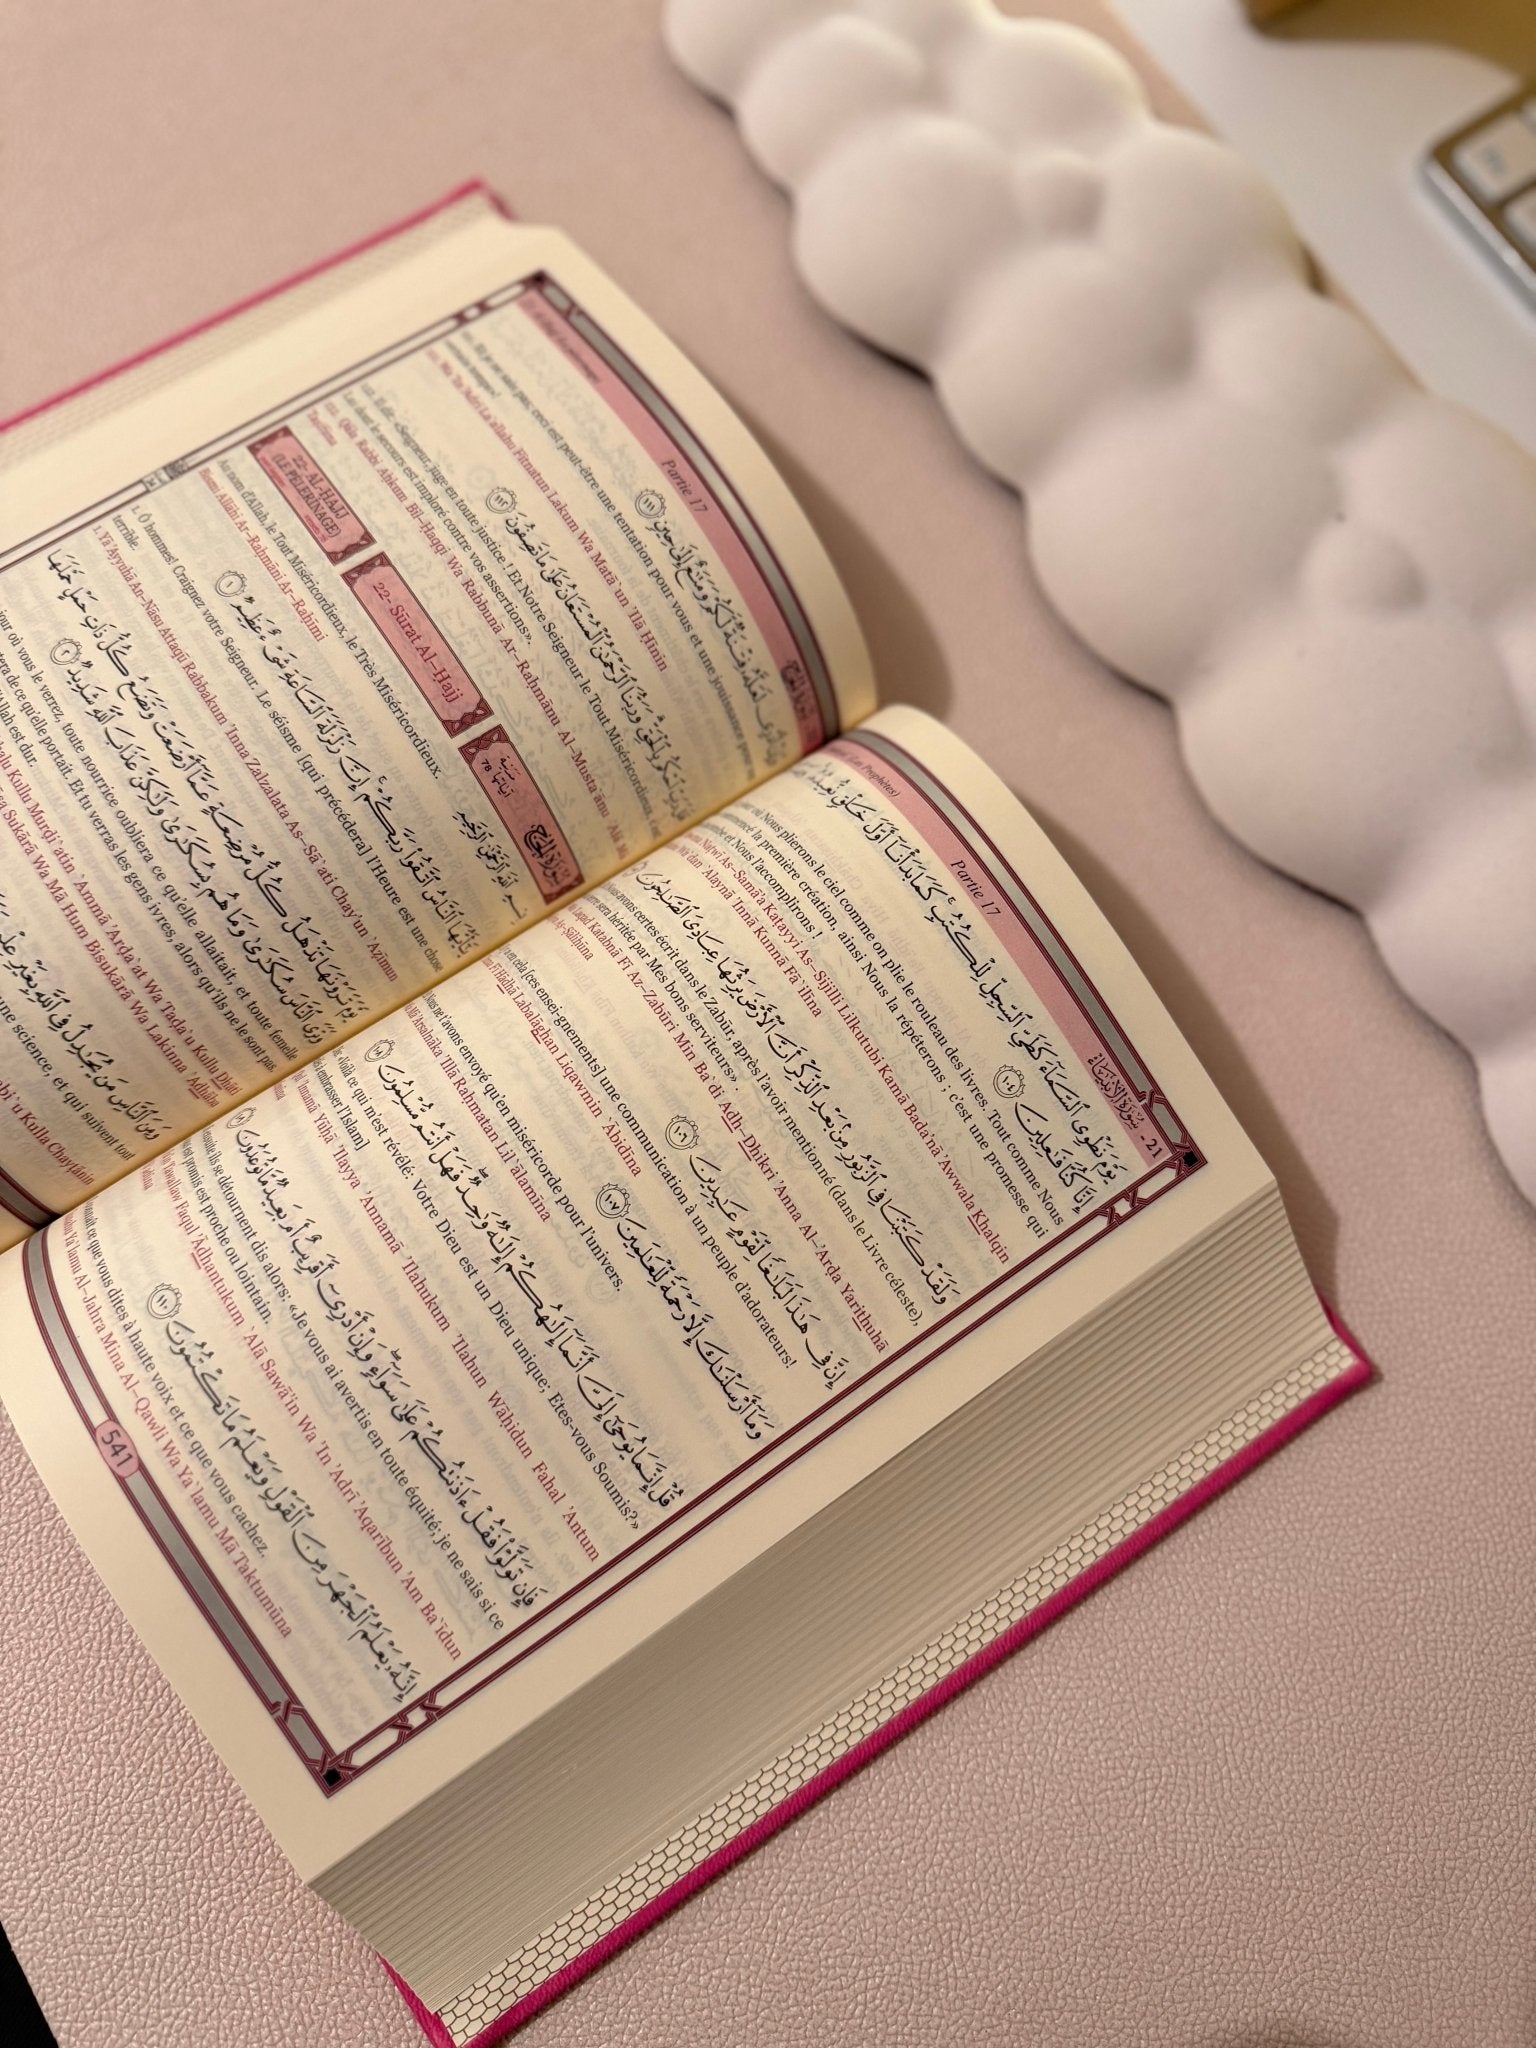 (Les Prophètes) Partie 17 سُورَةُ الأَنبِيَاءِ - 21
يَوْمَ نَطْوِى ٱلسَّمَآءَ كَطَىِّ ٱلسِّجِلِّ لِلْكُتُبِ ۚ كَمَا بَدَأْنَآ أَوَّلَ خَلْقٍ نُّعِيدُهُۥ
إِنَّا كُنَّا فَٰعِلِينَ ١٠٤
où Nous plierons le ciel comme on plie le rouleau des livres. Tout comme Nous
la première création, ainsi Nous la répéterons ; c'est une promesse qui
et Nous l'accomplirons !
Naţwī As-Samā'a Katayyi As-Sijilli Lilkutubi Kamā Bada'nā 'Awwala Khalqin
Wa`dan `Alaynā 'Innā Kunnā Fā`ilīna
وَلَقَدْ كَتَبْنَا فِى ٱلزَّبُورِ مِنۢ بَعْدِ ٱلذِّكْرِ أَنَّ ٱلْأَرْضَ يَرِثُهَا عِبَادِىَ ٱلصَّٰلِحُونَ
Nous avons certes écrit dans le Zabūr, après l'avoir mentionné (dans le Livre céleste),
sera héritée par Mes bons serviteurs».
Laqad Katabnā Fī Az-Zabūri Min Ba`di Adh-Dhikri 'Anna Al-'Arđa Yarithuhā
Aş-Şāliĥūna
إِنَّ فِى هَٰذَا لَبَلَٰغًا لِّقَوْمٍ عَٰبِدِينَ ١٠٦
en cela [ces ensei-gnements] une communication à un peuple d'adorateurs!
Fī Hādhā Labalāghan Liqawmin `Ābidīna
وَمَآ أَرْسَلْنَٰكَ إِلَّا رَحْمَةً لِّلْعَٰلَمِينَ ١٠٧
Nous ne t'avons envoyé qu'en miséricorde pour l'univers.
'Arsalnāka 'Illā Raĥmatan Lil`ālamīna
قُلْ إِنَّمَا يُوحَىٰٓ إِلَىَّ أَنَّمَآ إِلَٰهُكُمْ إِلَٰهٌ وَٰحِدٌ ۖ فَهَلْ أَنتُم مُّسْلِمُونَ ١٠٨
«Voilà ce qui m'est révélé: Votre Dieu est un Dieu unique; Etes-vous Soumis?»
embrasser l'Islam]
'Innamā Yūĥá 'Ilayya 'Annamā 'Ilahukum 'Ilahun Wāĥidun Fahal 'Antum
فَإِن تَوَلَّوْا۟ فَقُلْ ءَاذَنتُكُمْ عَلَىٰ سَوَآءٍ ۖ وَإِنْ أَدْرِىٓ أَقَرِيبٌ أَم بَعِيدٌ مَّا تُوعَدُونَ
ils se détournent dis alors: «Je vous ai avertis en toute équité; je ne sais si ce
est promis est proche ou lointain.
Tawallaw Faqul 'Ādhantukum `Alá Sawā'in Wa 'In 'Adrī 'Aqarībun 'Am Ba`īdun
إِنَّهُۥ يَعْلَمُ ٱلْجَهْرَ مِنَ ٱلْقَوْلِ وَيَعْلَمُ مَا تَكْتُمُونَ ١١٠
ce que vous dites à haute voix et ce que vous cachez.
Ya`lamu Al-Jahra Mina Al-Qawli Wa Ya`lamu Mā Taktumūna
541
Partie 17
لَعَلَّهُۥ فِتْنَةٌ لَّكُمْ وَمَتَٰعٌ إِلَىٰ حِينٍ ١١١
Et je ne sais pas, ceci est peut-être une tentation pour vous et une jouissance pour un
certain temps»!
'Adrī La`allahu Fitnatun Lakum Wa Matā`un 'Ilá Ĥīnin
ٱحْكُم بِٱلْحَقِّ ۗ وَرَبُّنَا ٱلرَّحْمَٰنُ ٱلْمُسْتَعَانُ عَلَىٰ مَا تَصِفُونَ ١١٢
112. Il dit: «Seigneur, juge en toute justice ! Et Notre Seigneur le Tout Miséricordieux, c'est
Lui dont le secours est imploré contre vos assertions».
112. Qāla Rabbi Aĥkum Bil-Ĥaqqi Wa Rabbunā Ar-Raĥmānu Al-Musta`ānu `Alá Mā
Taşifūna
22- AL-HAJJ
(LE PÈLERINAGE)
22- Sūrat Al-Ĥajj
آيَاتُهَا 78
سُورَةُ الحَجِّ
بِسْمِ ٱللَّهِ ٱلرَّحْمَٰنِ ٱلرَّحِيمِ
Au nom d'Allah, le Tout Miséricordieux, le Très Miséricordieux.
Bismi Allāhi Ar-Raĥmāni Ar-Raĥīmi
يَٰٓأَيُّهَا ٱلنَّاسُ ٱتَّقُوا۟ رَبَّكُمْ ۚ إِنَّ زَلْزَلَةَ ٱلسَّاعَةِ شَىْءٌ عَظِيمٌ ١
1. Ô hommes! Craignez votre Seigneur. Le séisme [qui précédera] l'Heure est une chose
terrible.
1. Yā 'Ayyuhā An-Nāsu Attaqū Rabbakum 'Inna Zalzalata As-Sā`ati Chay'un `Ažīmun
يَوْمَ تَرَوْنَهَا تَذْهَلُ كُلُّ مُرْضِعَةٍ عَمَّآ أَرْضَعَتْ وَتَضَعُ كُلُّ ذَاتِ حَمْلٍ حَمْلَهَا
وَتَرَى ٱلنَّاسَ سُكَٰرَىٰ وَمَا هُم بِسُكَٰرَىٰ وَلَٰكِنَّ عَذَابَ ٱللَّهِ شَدِيدٌ ٢
jour où vous le verrez, toute nourrice oubliera ce qu'elle allaitait, et toute femelle
de ce qu'elle portait. Et tu verras les gens ivres, alors qu'ils ne le sont pas.
d'Allah est dur.
Kullu Murđi`atin `Ammā 'Arđa`at Wa Tađa`u Kullu Dhāti
Sukārá Wa Mā Hum Bisukārá Wa Lakinna `Adhāba
وَمِنَ ٱلنَّاسِ مَن يُجَٰدِلُ فِى ٱللَّهِ بِغَيْرِ عِلْمٍ
une science, et qui suivent tout
Kulla Chayţānin